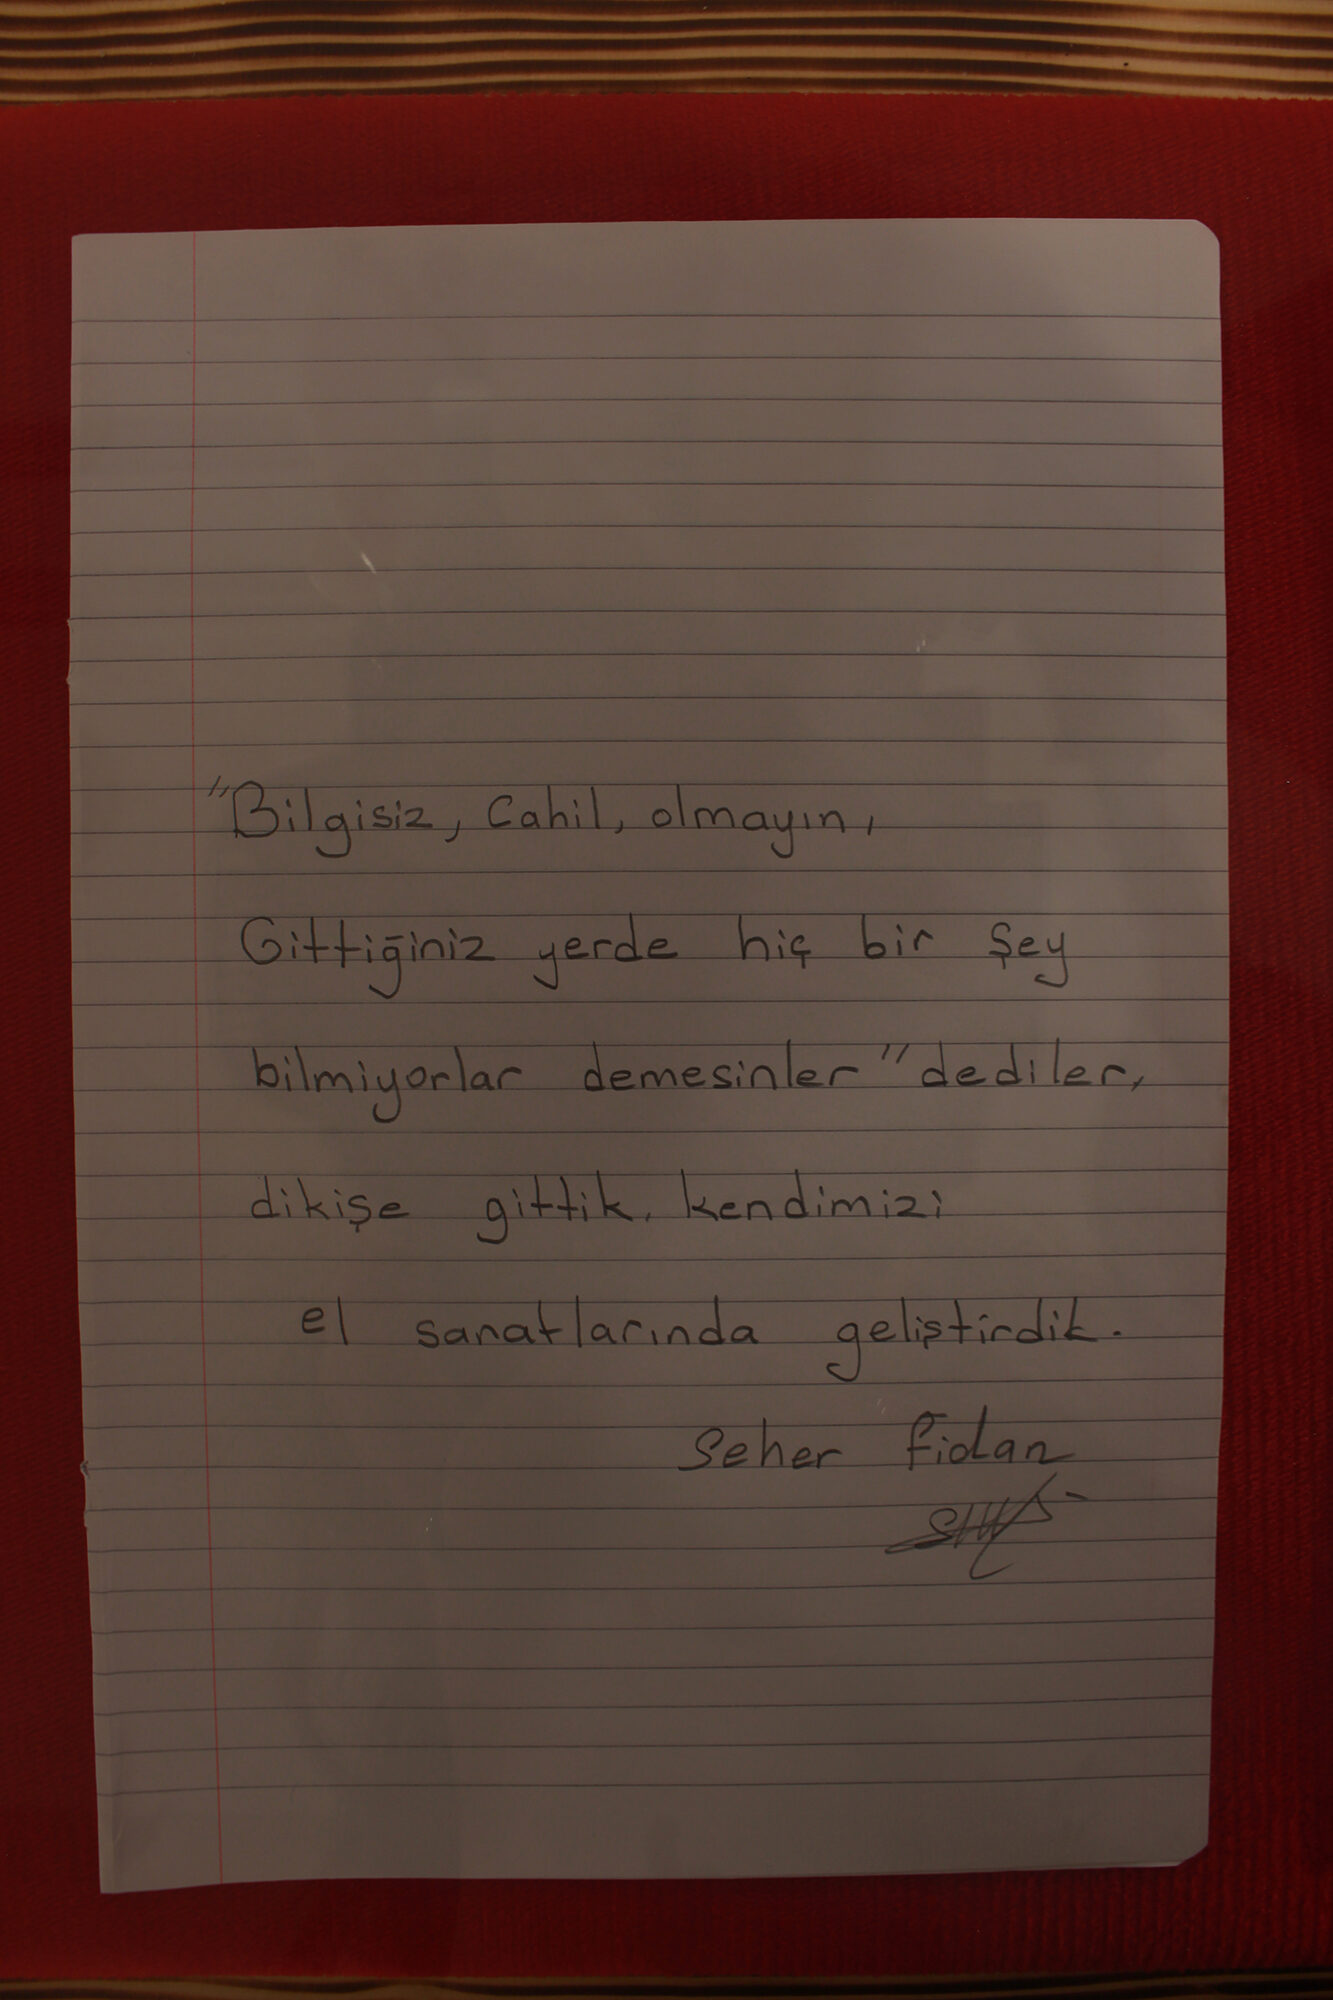 "Bilgisiz, Cahil, olmayın,
Gittiğiniz yerde hiç bir şey
bilmiyorlar demesinler" dediler,
dikişe gittik, kendimizi
el sanatlarında geliştirdik.
Seher Fidan